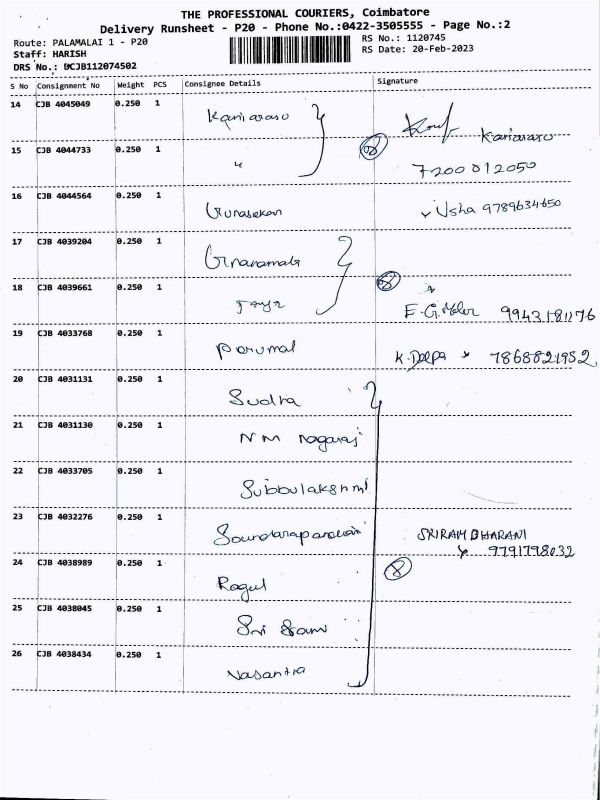 THE PROFESSIONAL COURIERS, Coimbatore
Delivery Runsheet - P20 - Phone No.:0422-3505555 - Page No.:2
Route: PALAMALAI 1 - P20
Staff: HARISH
DRS No.: DCJB112074502
RS No.: 1120745
RS Date: 20-Feb-2023
S No Consignment No Weight PCS Consignee Details Signature
14 CJB 4045049 0.250 1 Kaniarasu
Kaniarasu
15 CJB 4044733 0.250 1 "
7200012050
16 CJB 4044564 0.250 1 Gunasekan Usha 9789634650
17 CJB 4039204 0.250 1
18 CJB 4039661 0.250 1
9943181176
19 CJB 4033768 0.250 1 Perumal K. Deepa 7868821952
20 CJB 4031131 0.250 1 Sudha
21 CJB 4031130 0.250 1 N M Nagaraj
22 CJB 4033705 0.250 1 Subbulakshmi
23 CJB 4032276 0.250 1 SRIRAM DHARANI
9791798032
24 CJB 4038989 0.250 1 Ragul 8
25 CJB 4038045 0.250 1 Sri Ram
26 CJB 4038434 0.250 1 Vasantha